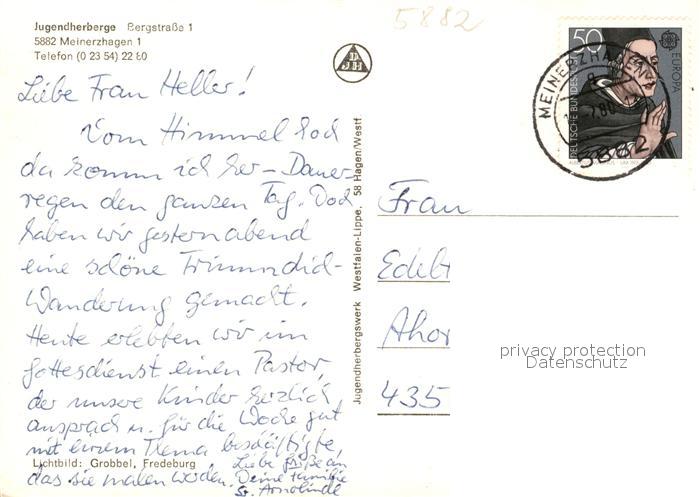 Jugendherberge Bergstraße 1
5882 Meinerzhagen 1
Telefon (0 23 54) 22 80
5882
DJH
50
EUROPA
DEUTSCHE BUNDESPOST
MEINERZHAGEN
5882
Liebe Frau Heller!
Vom Himmel hoch
da komm ich her – Dauer-
regen den ganzen Tag. Doch
haben wir gestern abend
eine schöne Trimmdich-
Wanderung gemacht.
Heute erlebten wir im
Gottesdienst einen Pastor,
der unsere Kinder herzlich
ansprach u. für die Woche gut
mit einem Thema beschäftigte,
das sie malen werden.
Liebe Grüße an
Deine Familie
Sr.
Lichtbild: Grobbel, Fredeburg
Jugendherbergswerk Westfalen-Lippe, 58 Hagen/Westf
Frau
Edelt
Ahor
435
privacy protection
Datenschutz